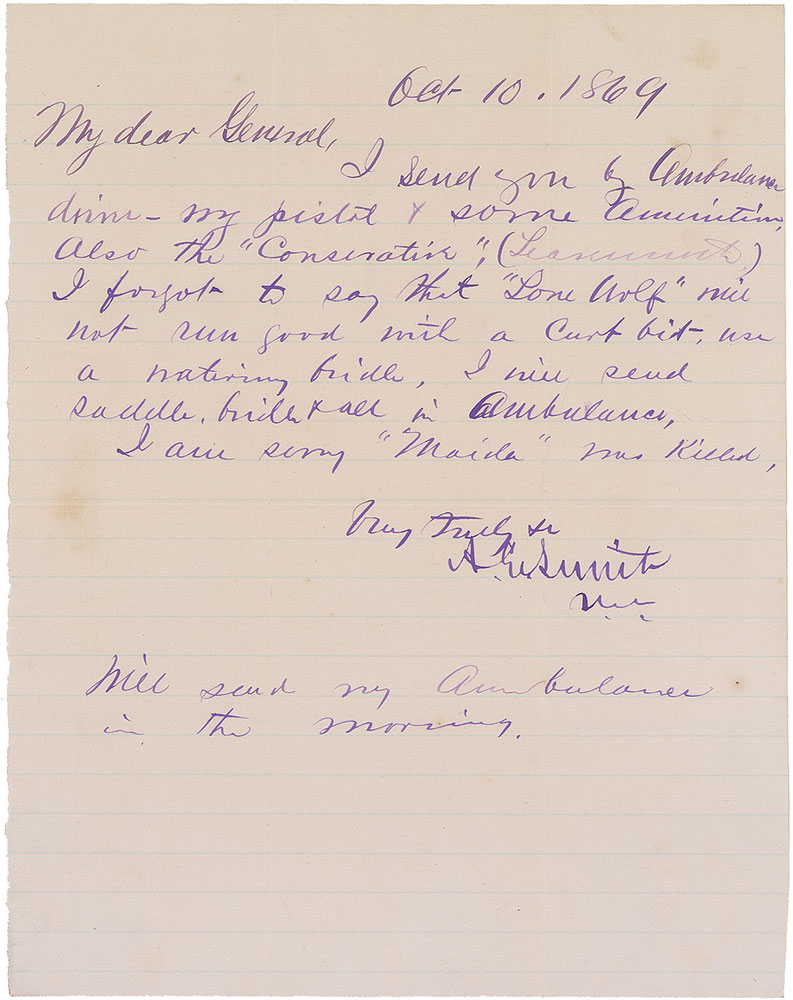 Oct 10. 1869
My dear General,
I send you by Ambulance
driver – my pistol & some Amunition,
Also the "Conservative", (
I forgot to say that "Lone Wolf" will
not run good with a Curb bit, use
a watering bridle, I will send
saddle, bridle & all in Ambulance,
I am sorry "Maida" was Killed,
Very Truly &c
A. E. Smith
Will send my Ambulance
in the morning.